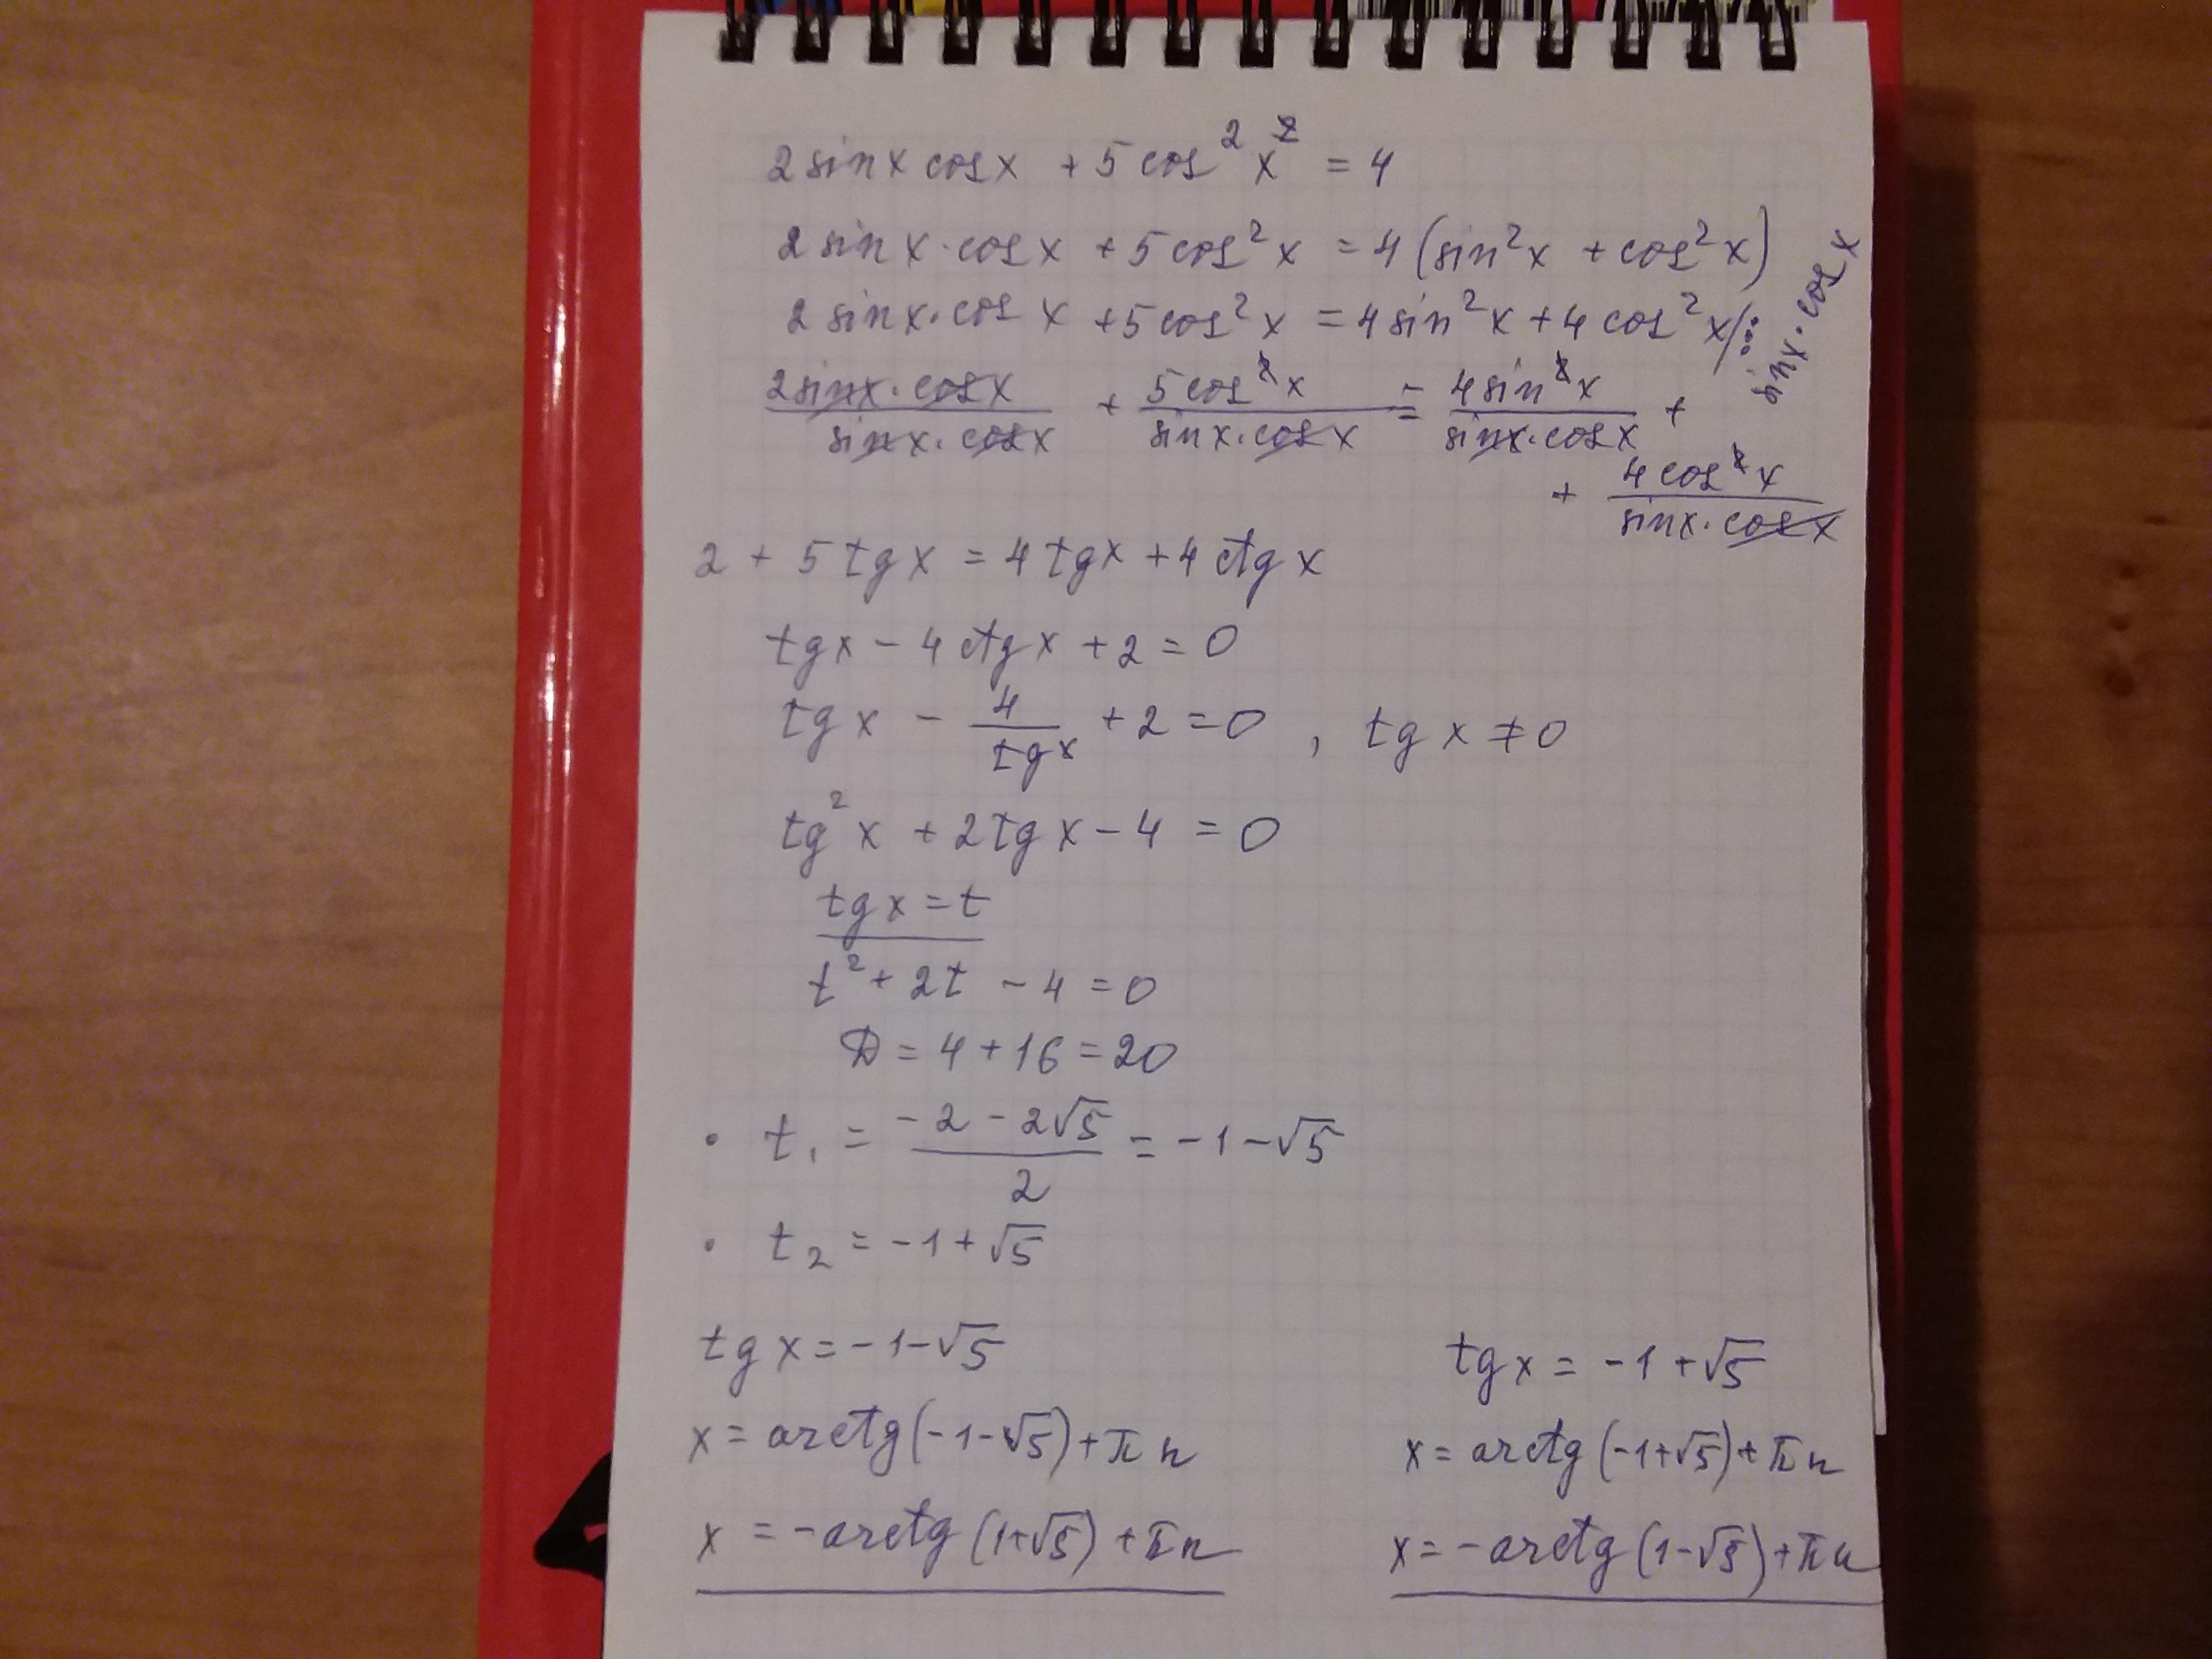 2 sin x cos x + 5 cos² x² = 4
2 sin x · cos x + 5 cos² x = 4 (sin² x + cos² x)
2 sin x · cos x + 5 cos² x = 4 sin² x + 4 cos² x /: sin x · cos x
2 sin x · cos x / sin x · cos x + 5 cos² x / sin x · cos x = 4 sin² x / sin x · cos x +
+ 4 cos² x / sin x · cos x
2 + 5 tg x = 4 tg x + 4 ctg x
tg x − 4 ctg x + 2 = 0
tg x − 4 / tg x + 2 = 0 , tg x ≠ 0
tg² x + 2 tg x − 4 = 0
tg x = t
t² + 2t − 4 = 0
D = 4 + 16 = 20
· t₁ = −2 − 2√5 / 2 = −1 − √5
· t₂ = −1 + √5
tg x = −1 − √5 tg x = −1 + √5
x = arctg (−1 − √5) + πn x = arctg (−1 + √5) + πn
x = −arctg (1 + √5) + πn x = −arctg (1 − √5) + πn